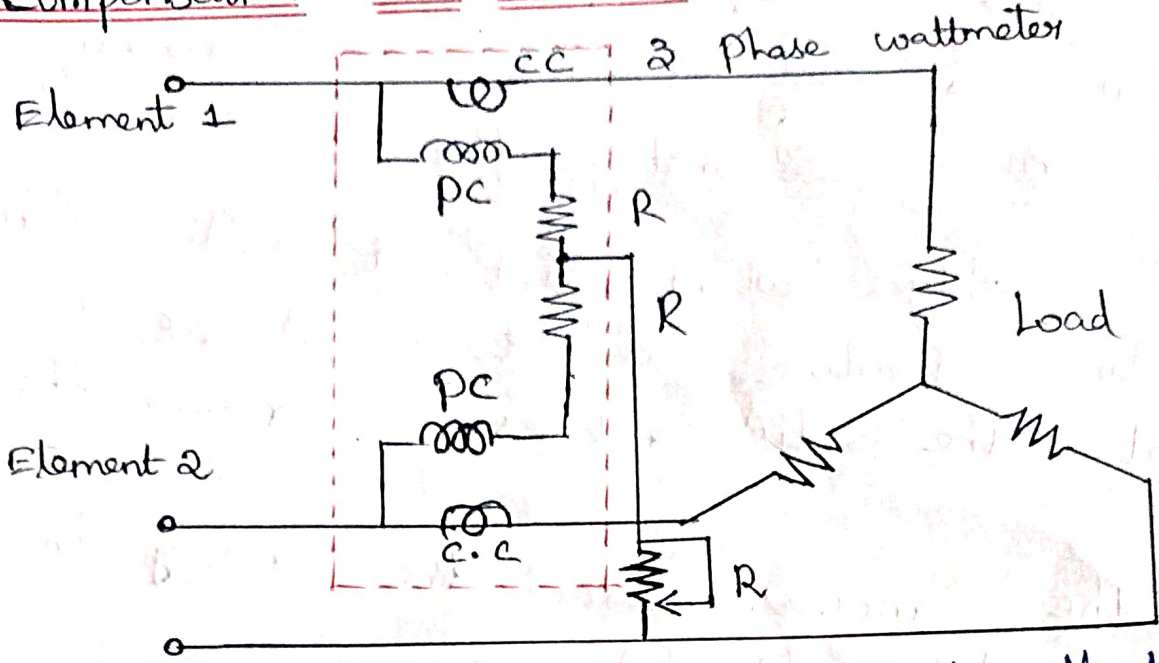 CC
3 Phase wattmeter
Element 1
PC
R
R
Load
PC
Element 2
C.C
R